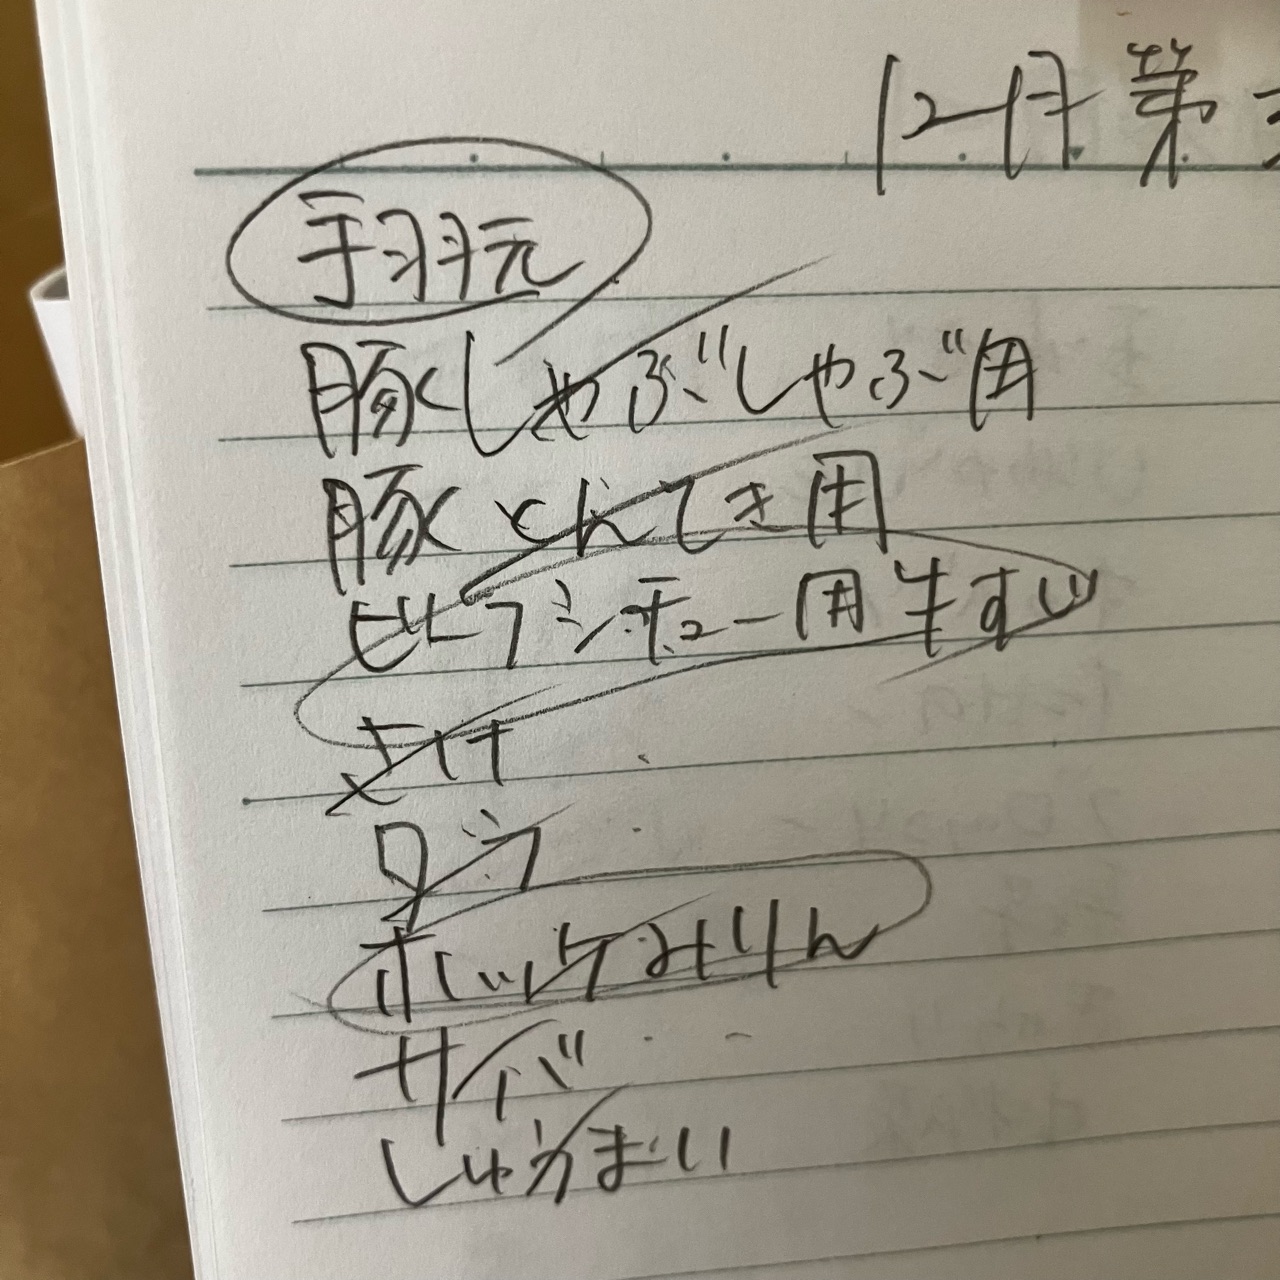 12月第
手羽元
豚しゃぶしゃぶ用
豚とんてき用
ビーフシチュー用牛すじ
さけ
タラ
ホッケみりん
サバ
しゅうまい